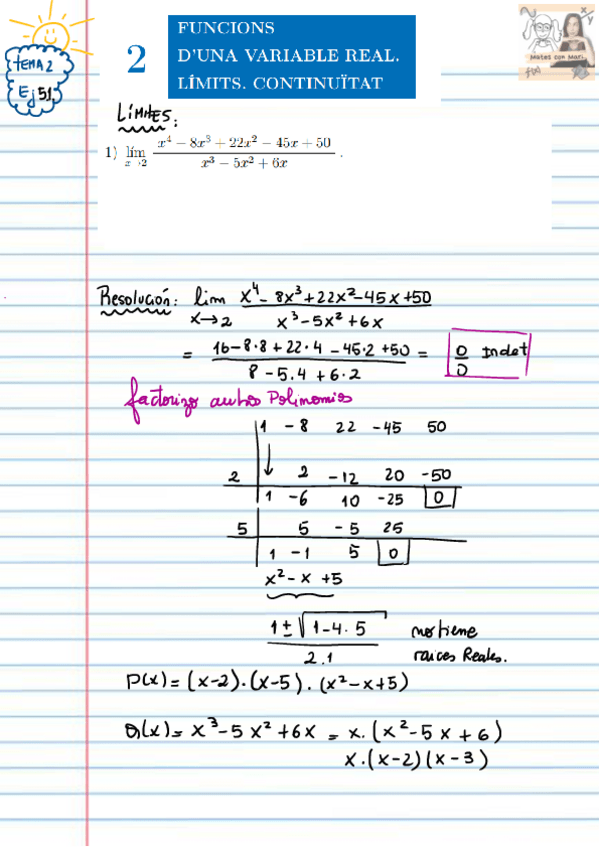 TEMA 2
Ej 51
2
FUNCIONS
D'UNA VARIABLE REAL.
LÍMITS. CONTINUÏTAT
Mates con Mari
LíMITES:
1) lím x→2 (x⁴ − 8x³ + 22x² − 45x + 50)/(x³ − 5x² + 6x) .
Resolución: lim x→2 (x⁴ - 8x³ + 22x² - 45x + 50)/(x³ - 5x² + 6x)
= (16 - 8·8 + 22·4 - 45·2 + 50)/(8 - 5.4 + 6·2) = 0/0 Indet
factorizo ambos Polinomios
1 -8 22 -45 50
2 2 -12 20 -50
1 -6 10 -25 0
5 5 -5 25
1 -1 5 0
x² - x + 5
(1 ± √(1 - 4·5))/(2.1) no tiene
raíces Reales.
P(x) = (x-2)·(x-5)·(x²-x+5)
Q(x) = x³ - 5x² + 6x = x·(x² - 5x + 6)
x·(x-2)(x-3)